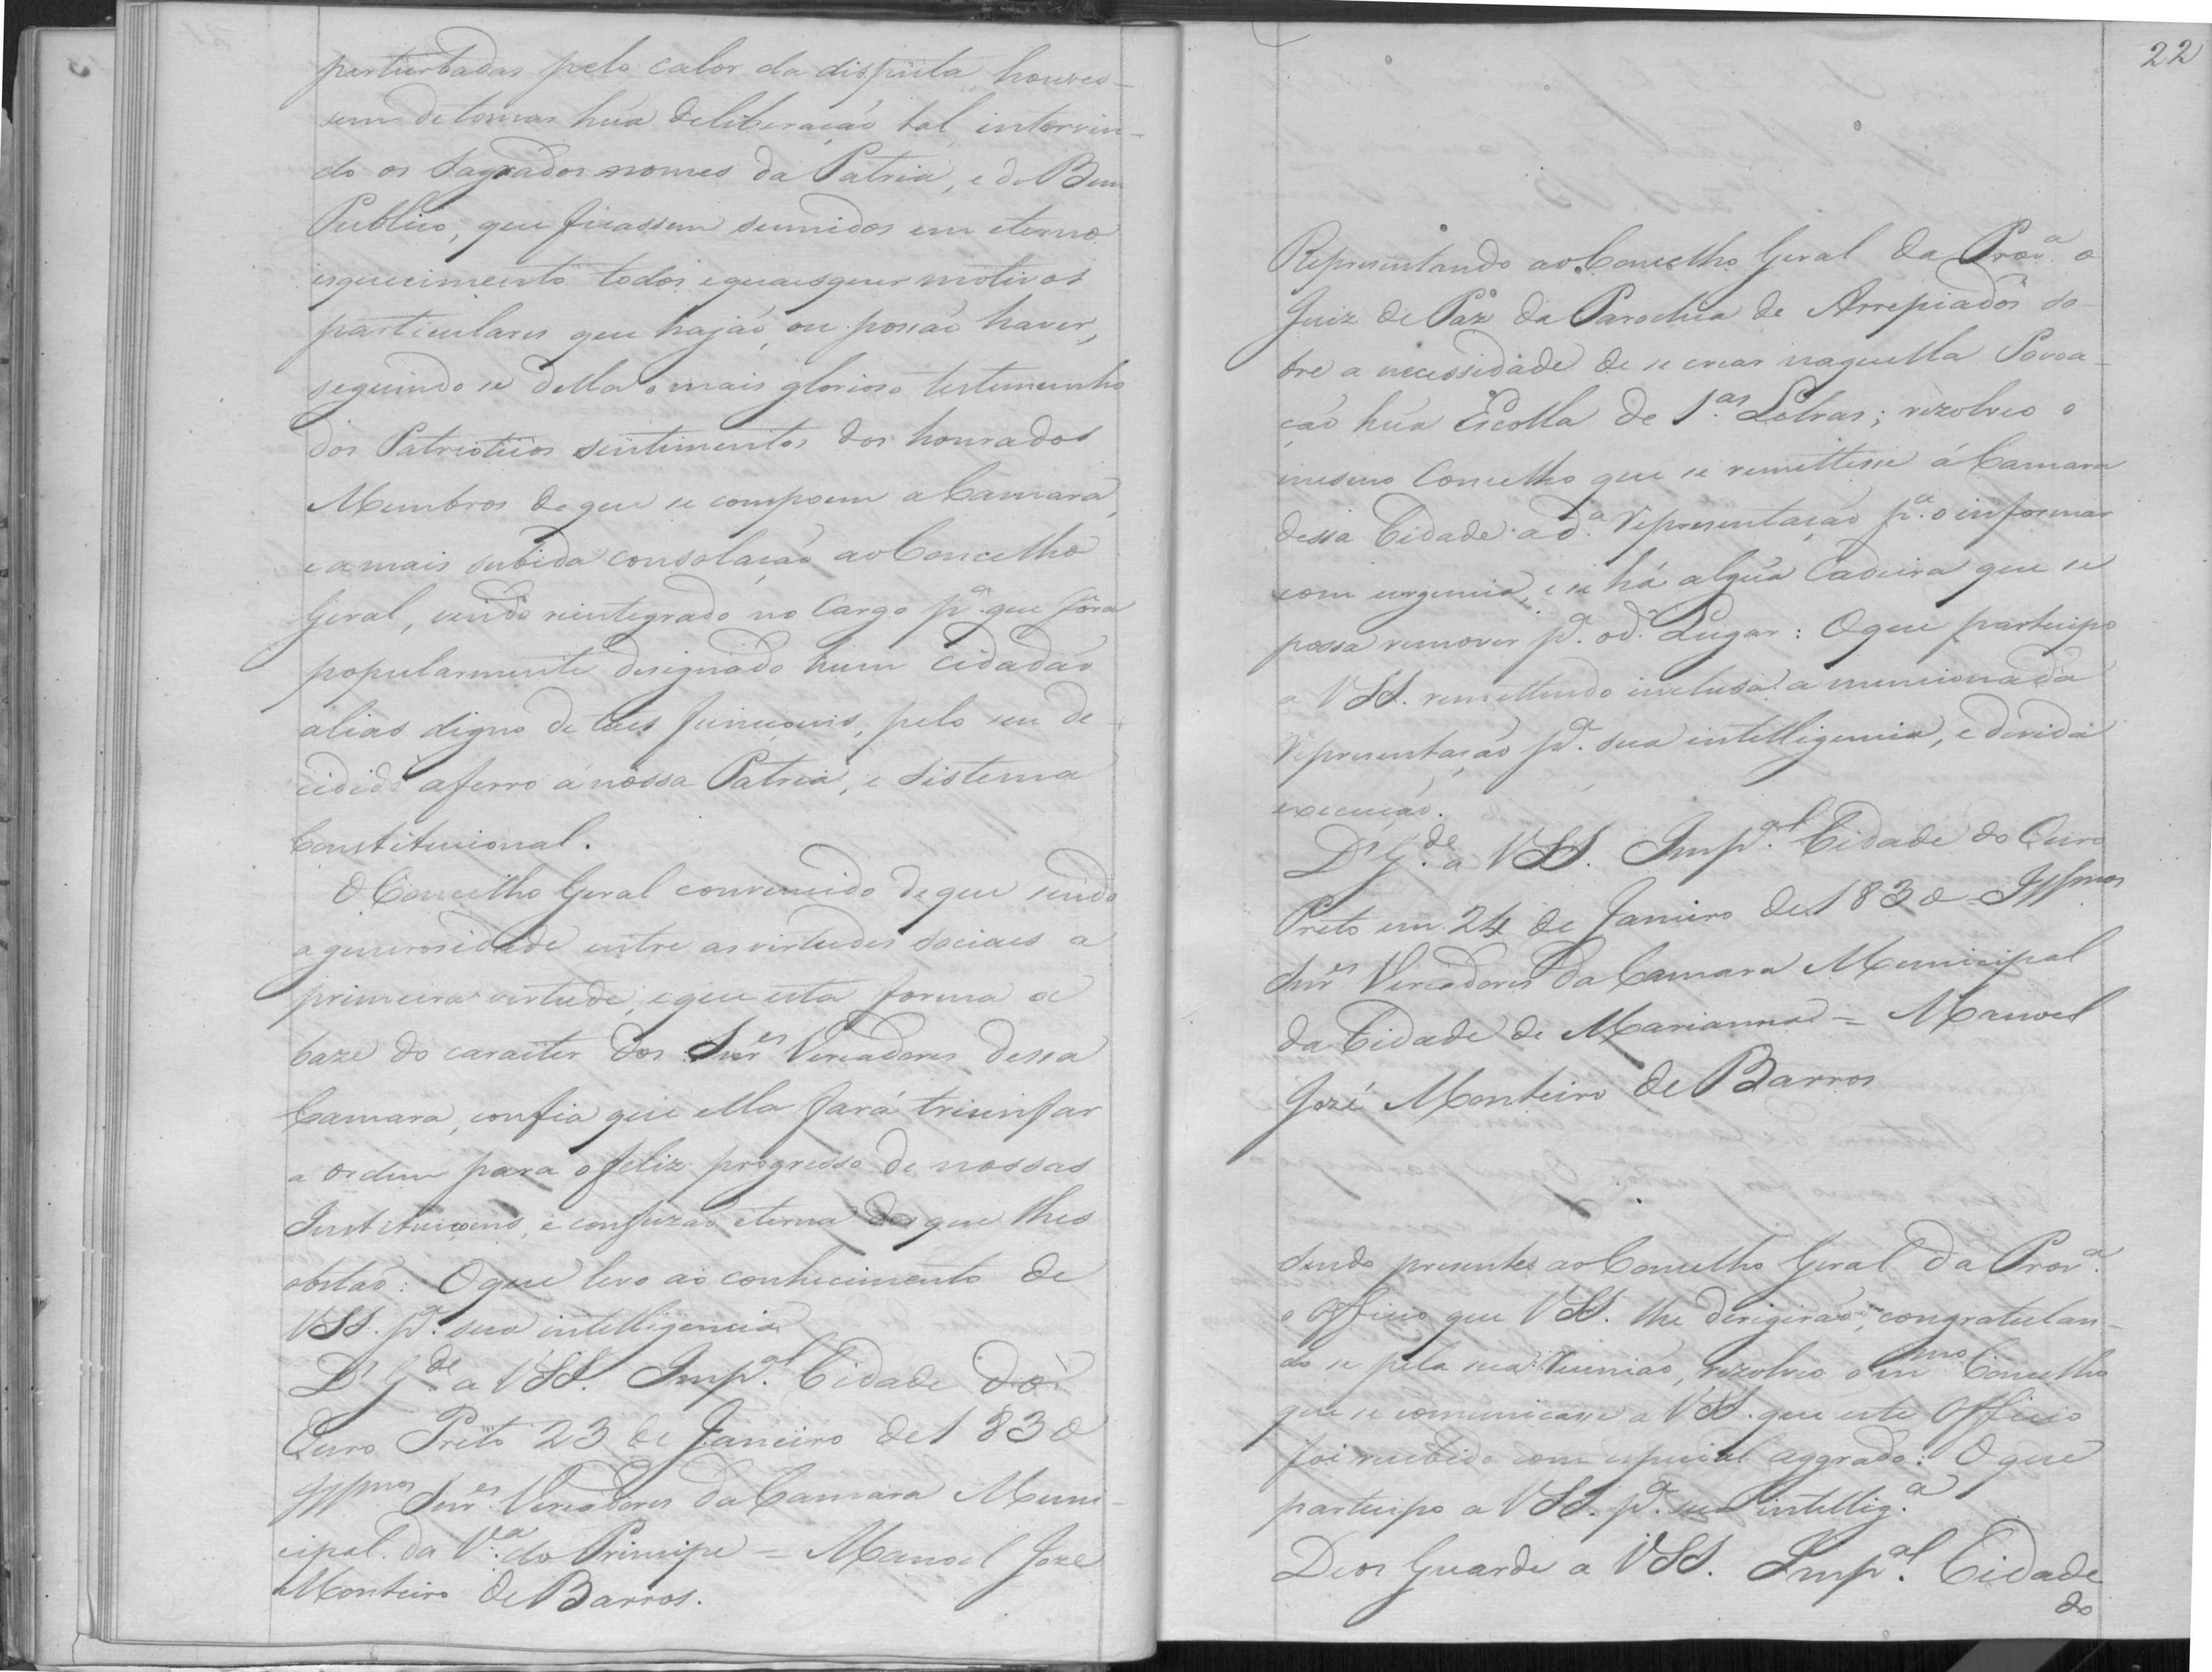 perturbadas pelo calor da dispúta, houves-
sem de tomar húa deliberação tal, intervin-
do os Sagrados nomes da Patria, e do Bem
Publico, que ficassem sumidos em eterno
esquecimento todos e quaesquer motivos
particulares que hajão, ou possão haver,
seguindo se della o mais glorioso testemunho
dos Patrioticos sentimentos dos honrados
Membros de que se compoem a Camara,
e a mais subida consolação ao Concelho
Geral, vendo reintegrado no Cargo pª. que fôra
popularmente designado hum Cidadão
alias digno de taes funcçoens, pelo seu de-
cidido aferro á nossa Patria, e Sistema
Constitucional.
O Concelho Geral convencido de que sendo
a generosidade entre as virtudes sociaes a
primeira virtude, e que esta forma a
baze do caracter dos Snrᵉˢ Vereadores dessa
Camara, confia que ella fará triunfar
a ordem para o feliz progresso de nossas
Instituiçoens, e confuzão eterna dos que lhes
obstão: O que levo ao conhecimento de
VSS. pª. sua intelligencia
Dˢ Gᵈᵉ a VSS. Impᵃˡ. Cidade do
Ouro Preto 23 de Janeiro de 1830
Illᵐᵒˢ Snrᵉˢ. Vereadores da Camara Muni-
cipal da Vᵃ. do Principe = Manoel Joze
Monteiro de Barros.
22
Representando ao Concelho Geral da Provª. o
Juiz de Paz da Parochia de Arrepiados so-
bre a necessidade de se crear naquella Povoa-
ção húa Escolla de 1.ᵃˢ Letras; rezolveo o
mesmo Concelho que se remettesse á Camara
dessa Cidade a dª. Representação pª. o informar
com urgencia, e se há algúa Cadeira que se
possa remover pª. o dº. Lugar: O que participo
a VSS. remettendo incluza a mencionada
Representação pª. sua intelligencia, e devida
execução.
Dˢ Gᵈᵉ a VSS. Impᵃˡ. Cidade do Ouro
Preto em 24 de Janeiro de 1830 = Illᵐᵒˢ
Snrᵉˢ Vereadores da Camara Municipal
da Cidade de Marianna = Manoel
José Monteiro de Barros
Sendo presente ao Concelho Geral da Provª.
o Officio que VSS. lhe dirigirão, congratulan-
do se pela sua Reunião, rezolveo o mᵐᵒ Concelho
que se comunicasse a VSS. que este Officio
foi recebido com especial aggrado: O que
participo a VSS. pª. sua intelligª.
Deos Guarde a VSS. Impᵃˡ. Cidade
do